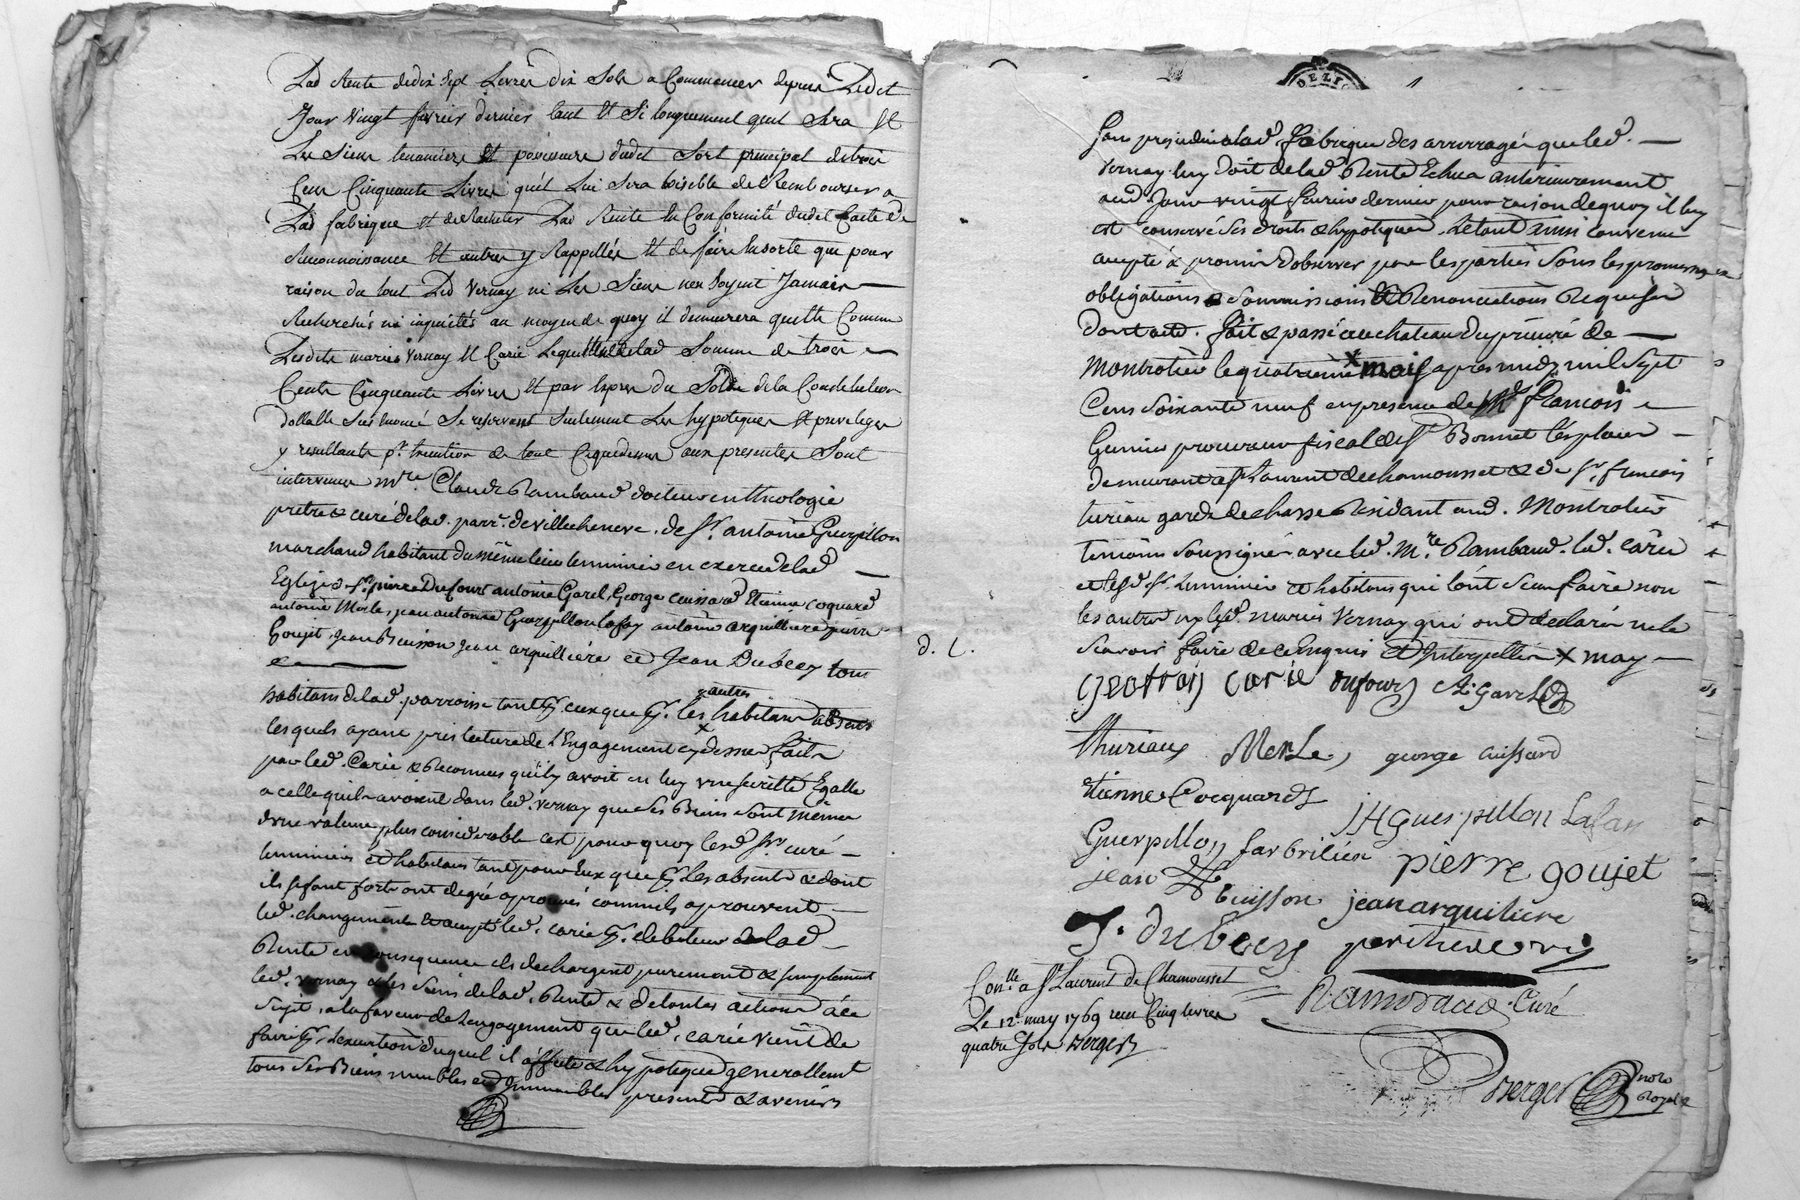 Lad Rente dedix Sept Livres dix Sols a Commencer depuis Ledit
Jour Vingt fevrier dernier tant Et Si longuement quil Sera Et
Les Siens tenanciers Et possesseurs dudit Sort principal de trois
Cens Cinquante Livres quil Lui Sera loisible de Rembourser a
Lad fabrique Et de Racheter Lad Rente En Conformité dudit Lacte de
Reconnoissance Et autres y Rappellés Et de faire Ensorte que pour
raison du tout Led Vernay ni Les Siens nen Soyent Jamais
Recherchés ni inquiétés au moyen de quoy il demeurera quitte Comme
Lesdits mariés Vernay Et Carié Le quittent de lad Somme de trois
Cents Cinquante Livres Et par Expres du Solde de la Constitution
dottalle Sus Enoncé Se reservant Seulement Les hypoteques Et privileges
y resultants pr. Lexecution de tout Cequedessus aux presentes Sont
intervenus mre. Claude Rambaud docteur en theologie
pretre & curé de lad. parr. de villecheneve. de Sr. antoine Guerpillon
marchand habitant du même lieu luminier en exercice de lad
Eglise Sr. pierre Dufour antoine Garel, George cuissard Etienne coquard
antoine Merle, jean antoine Guerpillon lafay antoine arquilliere pierre
Goujet, Jean Buisson Jean arquilliére et Jean Dubecy tous
habitans de lad. parroisse tant pr. eux que pr. les habitans absens
x autres
lesquels ayant pris lecture de l'Engagement cy dessus fait
par led. Carié & Reconnus qu'il y avoit en luy une seureté Egalle
a celle quils avoient dans led. vernay que Ses Biens Sont même
d'une valeur plus considerable cest pourquoy lesd. Srs. curé
luminier et habitans tant pour Eux que pr. Les absents & dont
ils se font forts ont de gré aprouvés comm'ils aprouvent
led. changement & accepté led. carié pr. debiteur de lad
Rente en consequence ils dechargent purement & simplement
led. vernay & les siens de lad. Rente & de toutes actions à ce
Sujet, a la faveur de Lengagement que led. carié vient de
faire pr. Lexecution duquel il affecte & hypoteque generallemt
tous Ses Biens meubles et Immeubles presents & avenirs
d. L.
Sans prejudice a lad. fabrique des arrerages que led.
Vernay luy doit de lad. Rente Echus anterieurement
aud. Jour vingt fevrier dernier pour raison de quoy il luy
est conservé Ses droits & hypoteques. Le tout ainsi convenu
accepté & promis d'observer par les parties Sous les promesses
obligations & Soumissions & Renonciations Requises
dont acte. fait & passé au chateau du prieuré de
Montrotier le quatrieme x mars apres midy mil Sept
Cens Soixante neuf en presence de Mr. françois
Gemier procureur fiscal de St. Bonnet les places
demeurant a St Laurent de chamousset & de Sr. francois
turiau garde de chasse Residant aud. Montrotier
temoins Soussignés avec led. Mre. Rambaud. led. carié
et lesd. Srs. luminier et habitans qui l'ont Sçeu faire non
les autres ny lesd. mariés Vernay qui ont declaré ne le
Scavoir faire de ce Enquis Et Interpellés x may
carié dufour A. Garel
thuriaux Merle, george cuissard
etienne Cocquard
JAGuerpillon Lafay
Guerpillon fabrilien pierre goujet
jean Buisson jean arquiliere
J. dubecy
Conlle. a St Laurent de Chamousset
Le 12 may 1769 recu Cinq livres
quatre Sols Berger
Rambaud. Curé
Berger
nore
Royal